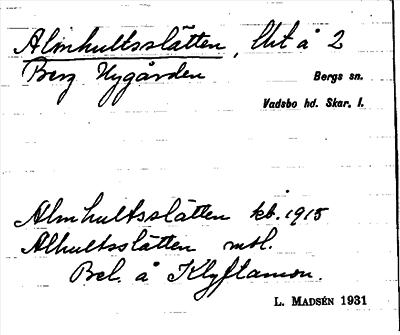 Almhultsslätten, Lht å 2
Berg Nygården
Bergs sn.
Vadsbo hd. Skar. l.
Almhultsslätten kb. 1915
Alhultsslätten mtl.
Bel. å Klyftamon.
L. MADSÉN 1931